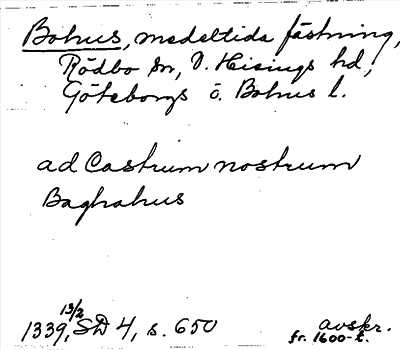 Bohus, medeltida fästning,
Rödbo sn, V. Hisings hd,
Göteborgs o. Bohus l.
ad Castrum nostrum
Baghahus
13/2
1339, SD 4, s. 650
avskr.
fr. 1600-t.